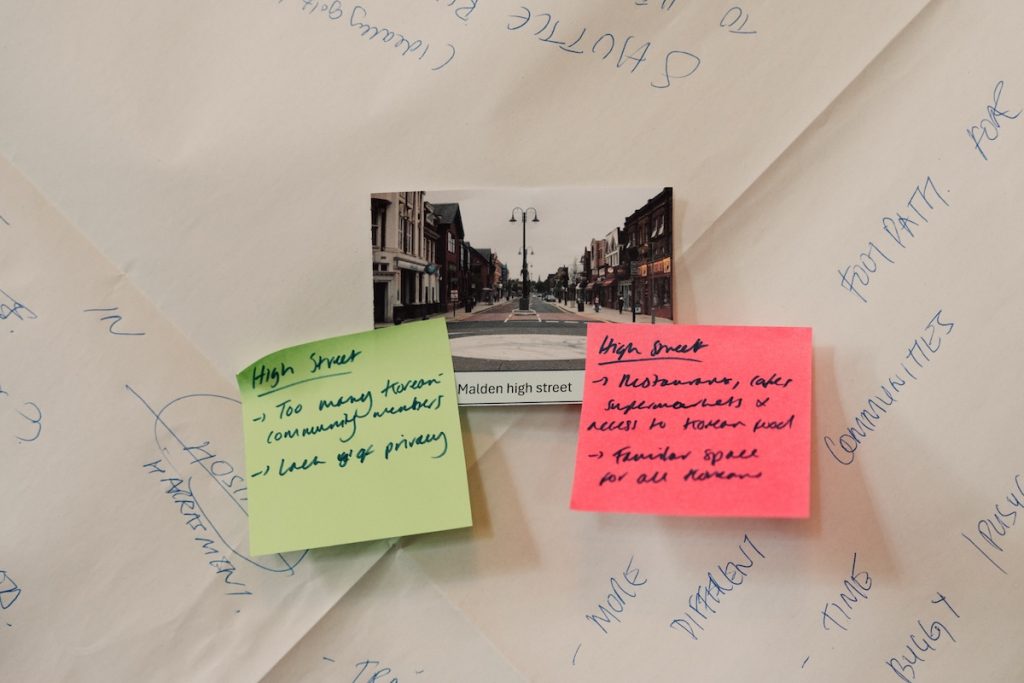 (ideally golf
SHUTTLE
TO
FOOTPATH. FOR
COMMUNITIES
IN
HARRASMENT.
Malden high street
High Street
-> Too many Korean
community members
-> Lack of privacy
High Street
-> Restaurants, cafes
supermarkets &
access to Korean food
-> Familiar space
for all Koreans
- MORE
DIFFERENT
- TIME
BUGGY